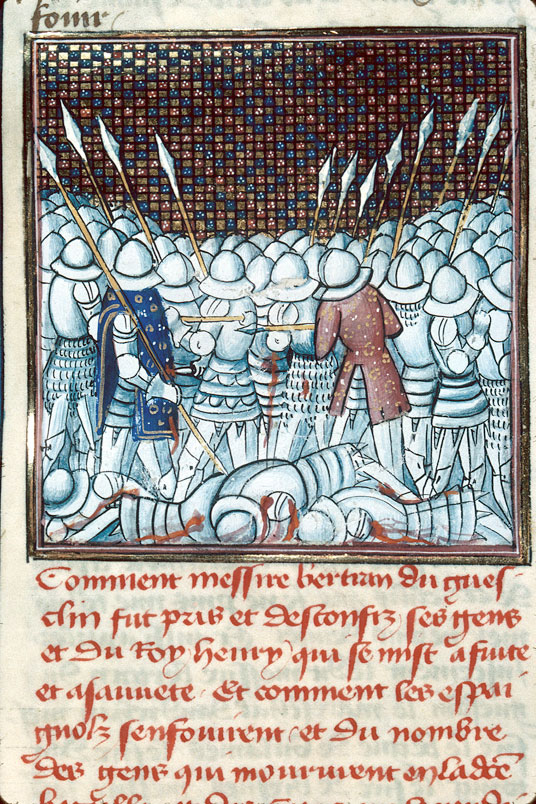 fouir
Comment messire bertran du gues
clin fut pris et desconfiz ses gens
et du Roy henry qui se mist a fuite
et a sauuete. Et comment les espai
gnolz senfouirent et du nombre
des gens qui moururent en ladce
bataille